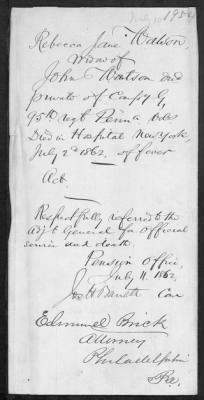 July 10 1854
Rebecca Jane Watson
Widow of
John Watson dec'd
private of Comp'y G,
95th regt Penn'a Vols
Died in Hospital New York,
July 2d 1862, of fever
Act.
Respectfully referred to the
Adjt General for Official
service and death.
Pension Office
July 11, 1862
Jos H Barrett Com
Edmund Brick
Attorney
Philadelphia
Pa.